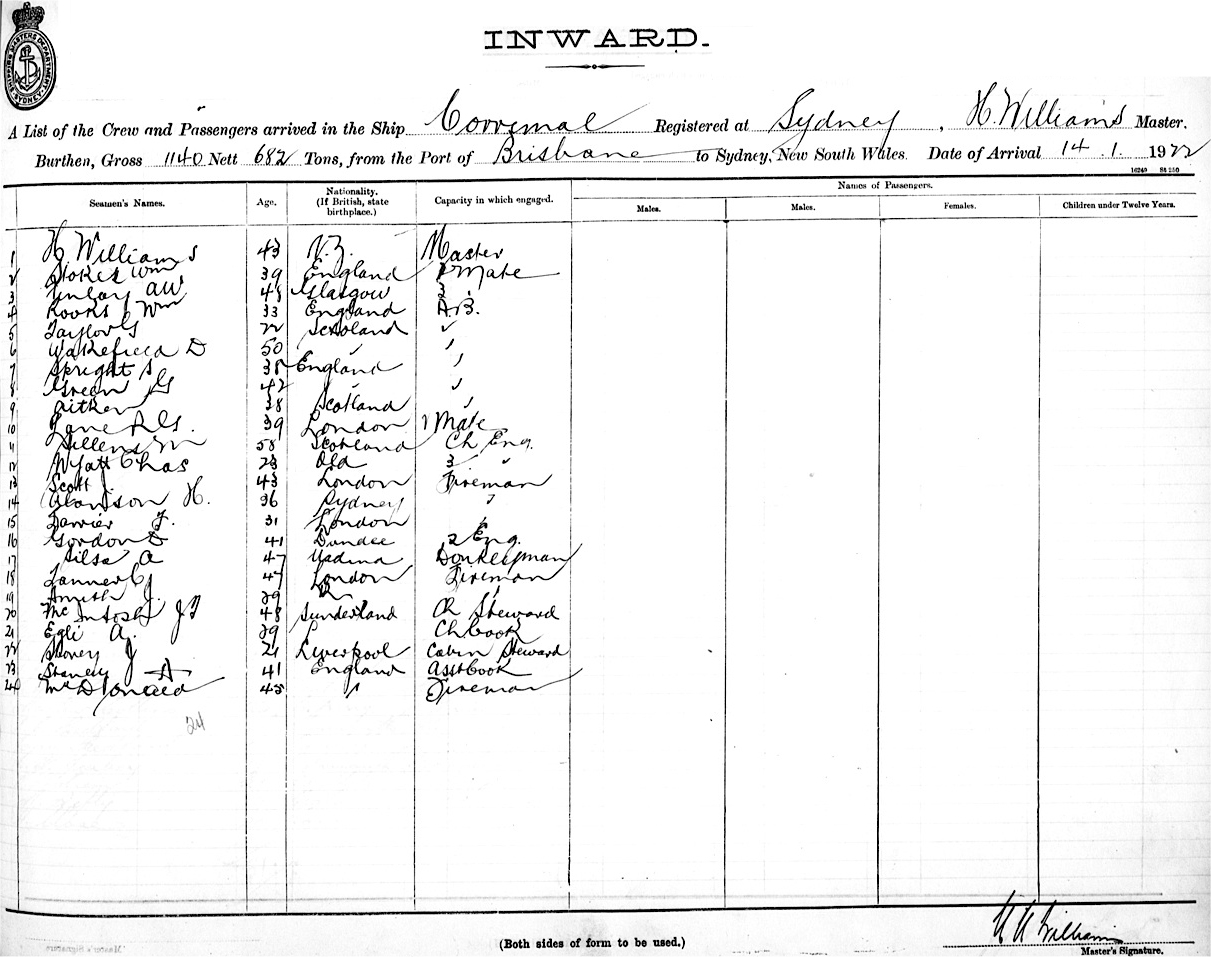 SHIPPING MASTERS DEPARTMENT SYDNEY
INWARD.
A List of the Crew and Passengers arrived in the Ship Corrimal Registered at Sydney, H. Williams Master,
Burthen, Gross 1140 Nett 682 Tons, from the Port of Brisbane to Sydney, New South Wales. Date of Arrival 14.1.1922
16249 84 250
Seamen's Names. Age. Nationality. (If British, state birthplace.) Capacity in which engaged. Names of Passengers.
Males. Males. Females. Children under Twelve Years.
1 H. Williams 43 N.Z. Master
2 Stokes Wm 39 England 2 Mate
3 Finlay AW 48 Glasgow 3
4 Rooks Wm 33 England A.B.
5 Taylor G 22 Scotland "
6 Wakefield D 50 " "
7 Spright S 38 England "
8 Green G 42 " "
9 Aitken 38 Scotland "
10 Lane R.G. 39 London 1 Mate
11 58 Scotland Ch Eng.
12 Wyatt Chas 23 Qld 3 "
13 Scott J 43 London Fireman
14 H. 36 Sydney "
15 F. 31 London "
16 Gordon D 41 Dundee 2 Eng.
17 A 47 Donkeyman
18 Tanner C J 47 London Fireman
19 Smith J. 29 "
20 McIntosh J 48 Sunderland Ch Steward
21 Egli A. 29 Ch Cook
22 Storey J 21 Liverpool Cabin Steward
23 Stanley A 41 England Asst Cook
24 McDonald 45 " Fireman
24
(Both sides of form to be used.)
H Williams
Master's Signature.